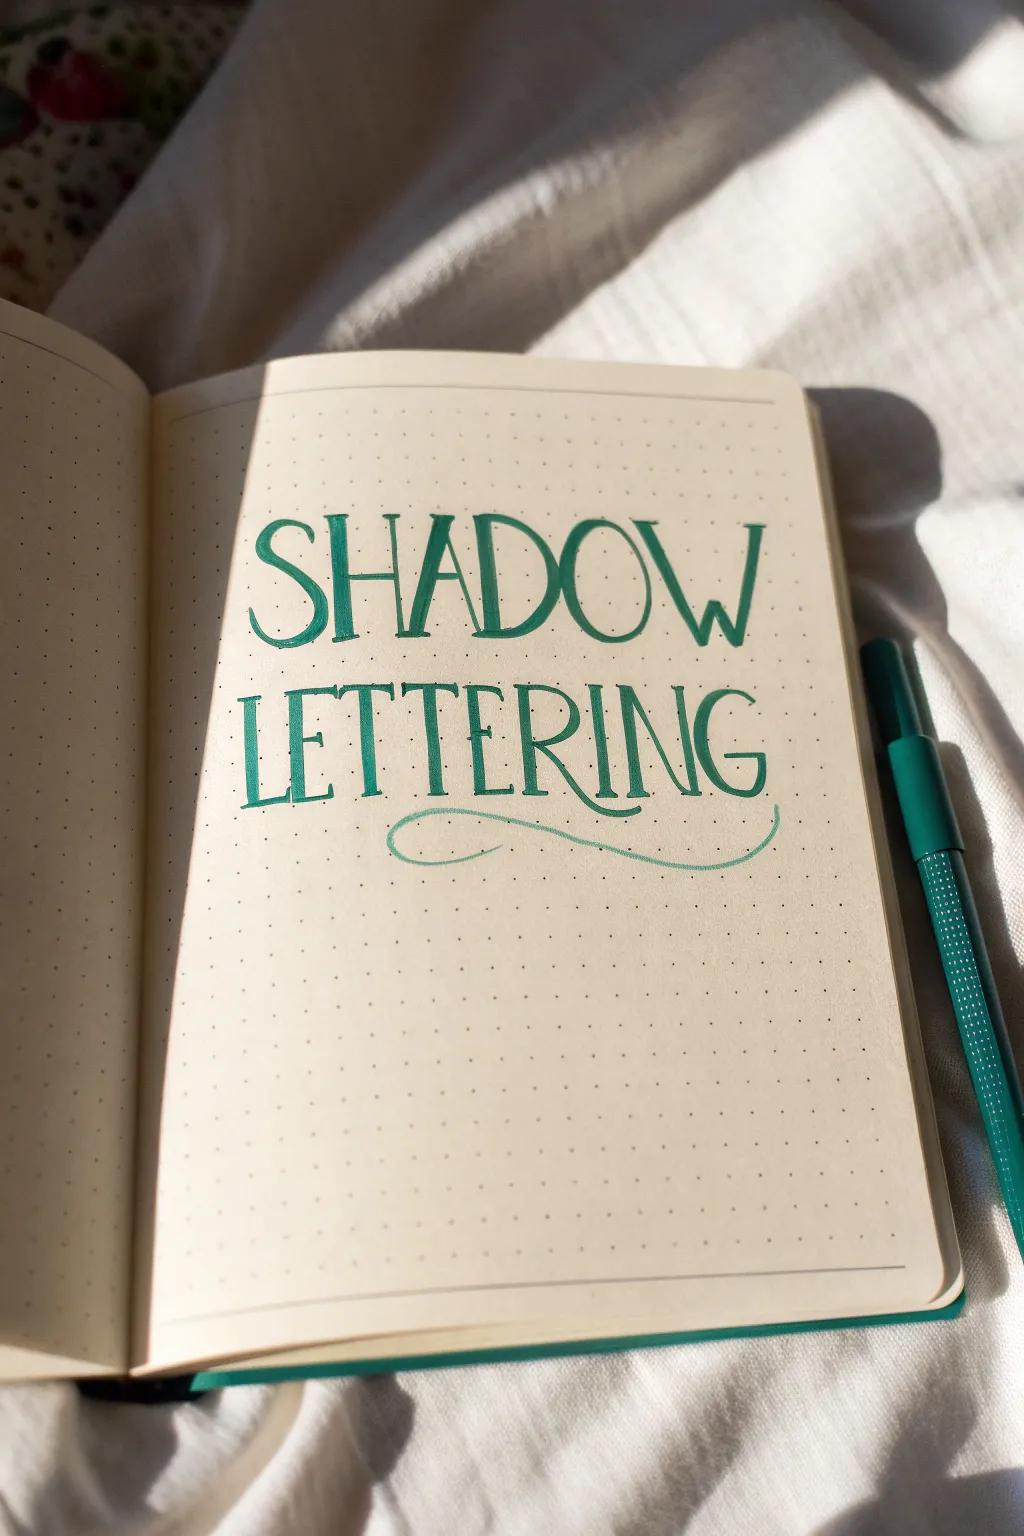 SHADOW
LETTERING